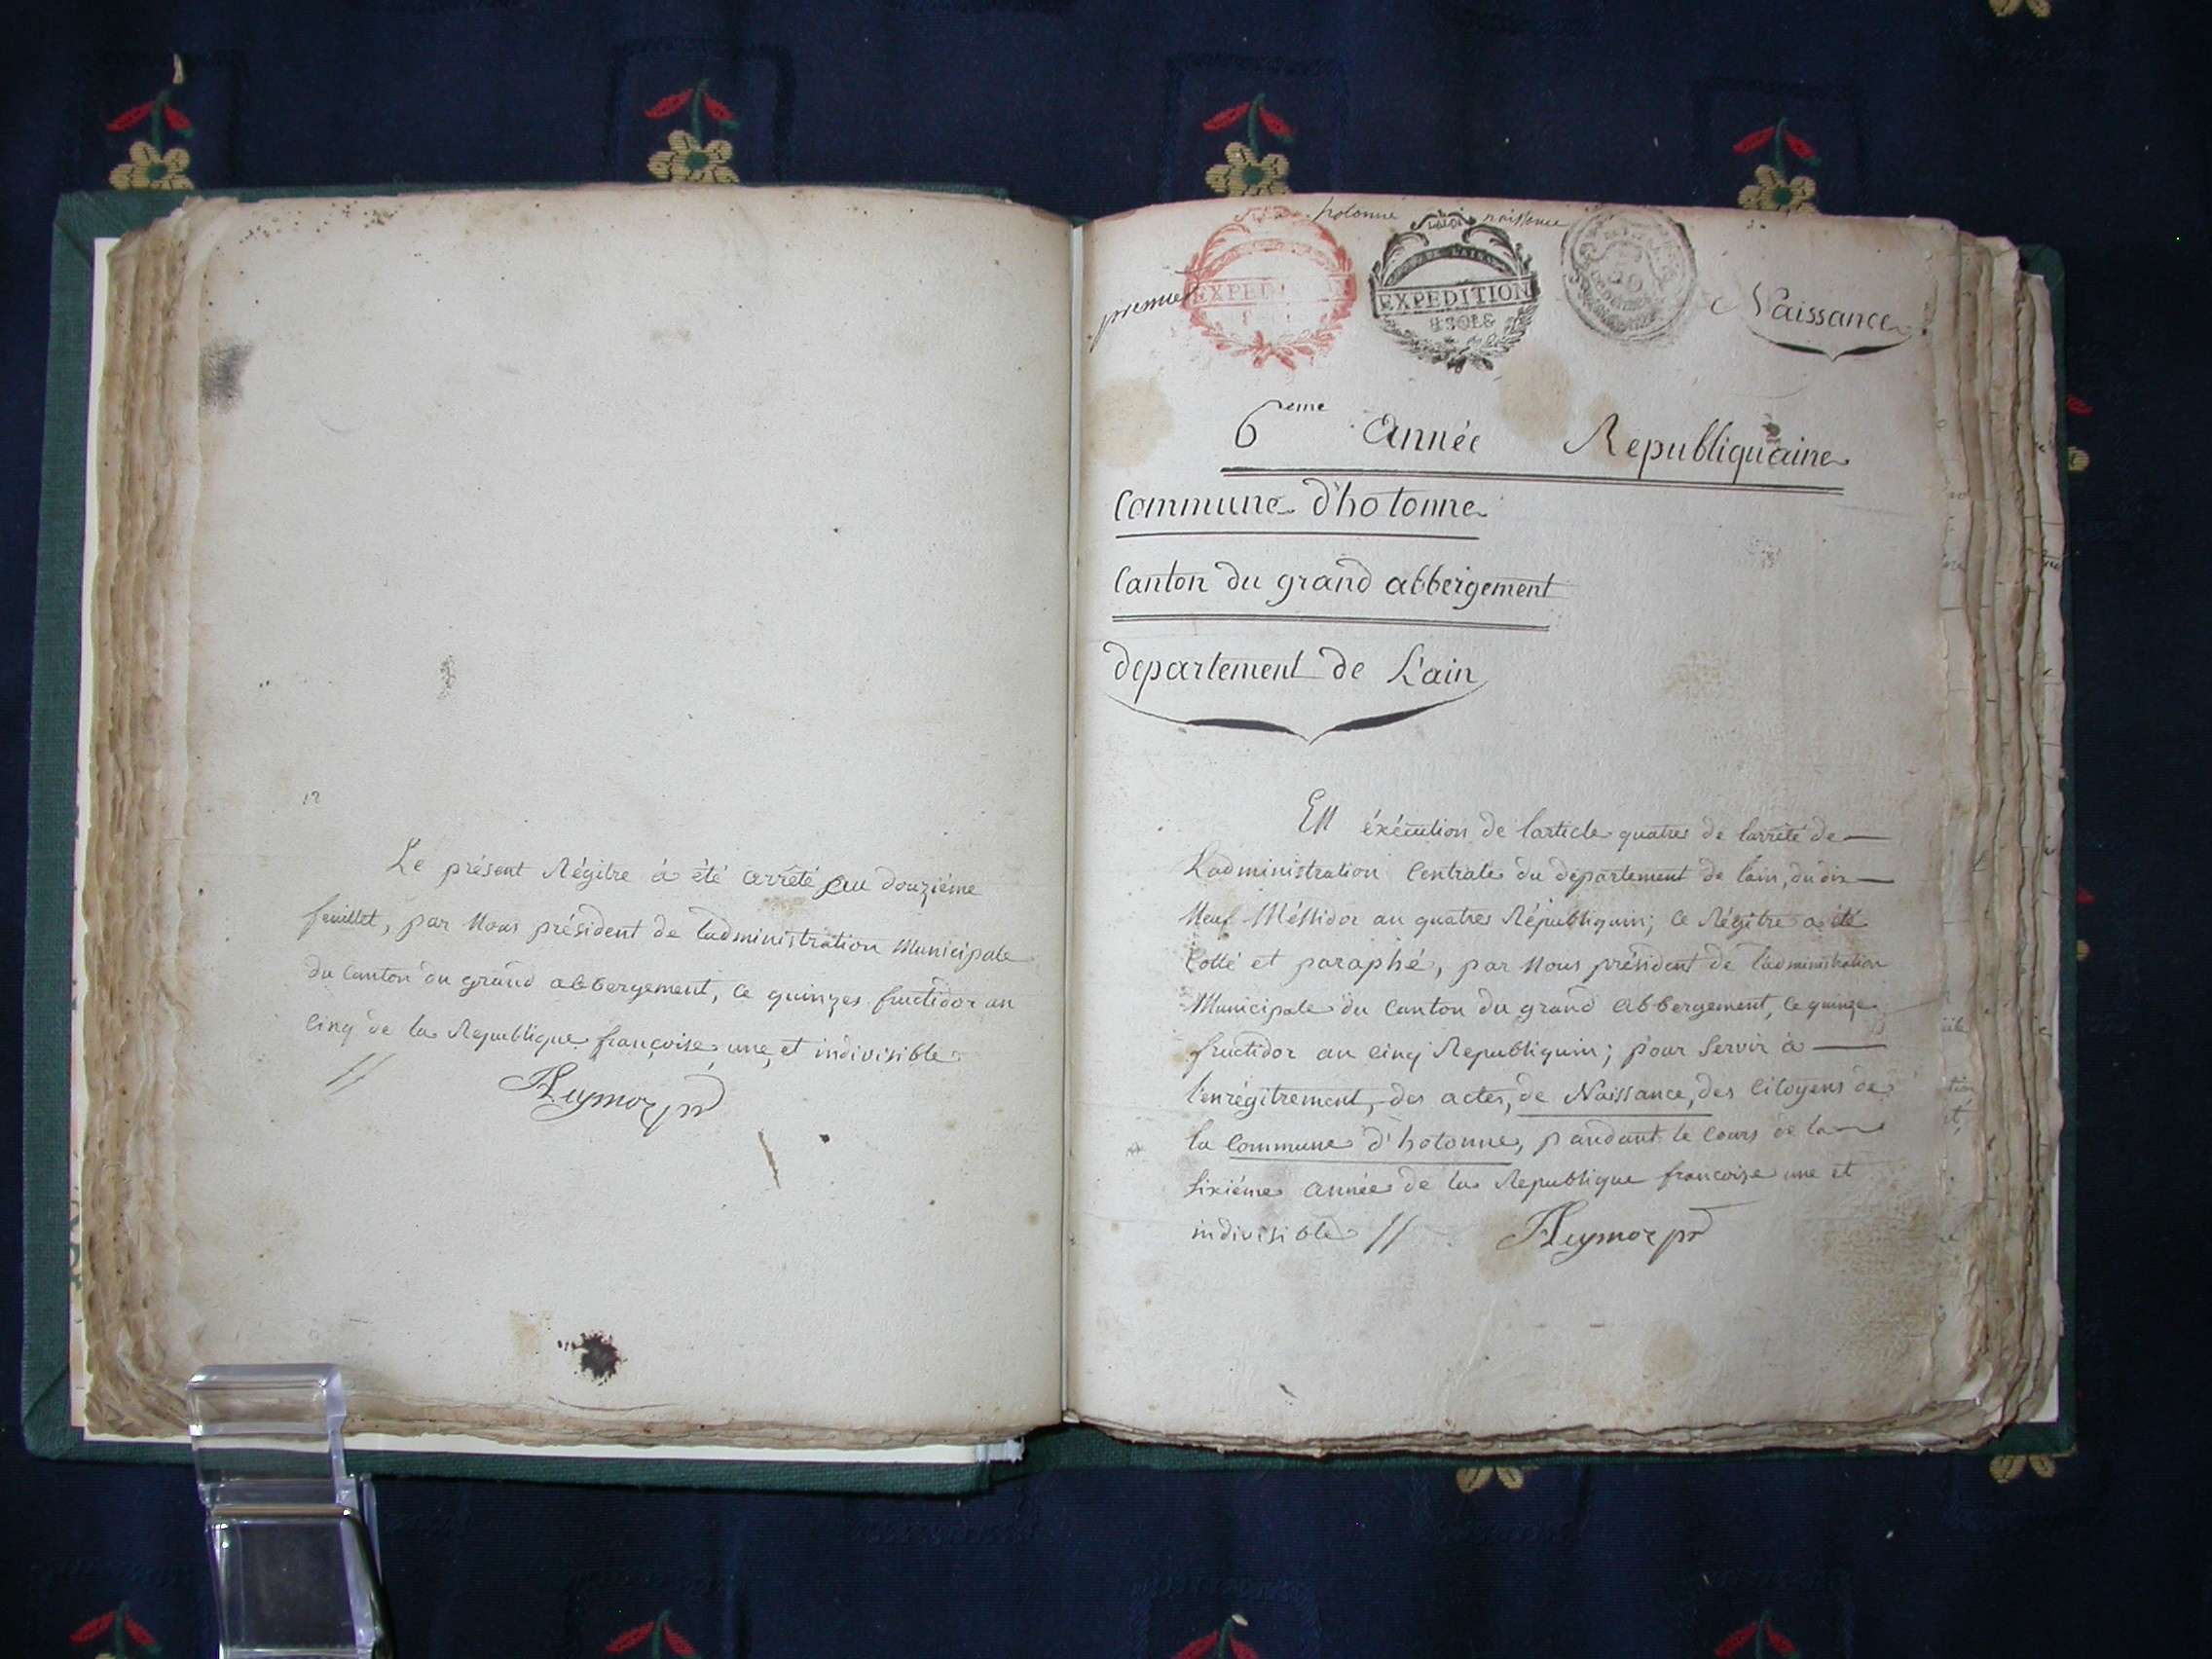 12
Le présent Régitre à été arrêté au douziéme
feuillet, par Nous président de ladministration Municipale
du Canton du grand abbergement, ce quinzes fructidor an
Cinq de la Republique françoise, une, et indivisible
//
hotonne naissance
premier
EXPEDITION
LA LOI
EXPEDITION
4 SOLS
Naissance
6eme Année Republiquaine
Commune d'hotonne
Canton du grand abbergement
departement de L'ain
En éxécution de larticle quatre de larrêté de
Ladministration Centrale du département de lain, du dix
Neuf Méssidor an quatre Républiquin; ce Régitre a été
Cotté et paraphé, par Nous président de l'administration
Municipale du Canton du grand abbergement, le quinze
fructidor an cinq Republiquin; pour Servir à
l'enrégitrement, des actes, de Naissance, des Citoyens de
la Commune d'hotonne, pandant le Cours de la
Sixiéme année de la Republique francoise une et
indivisible //